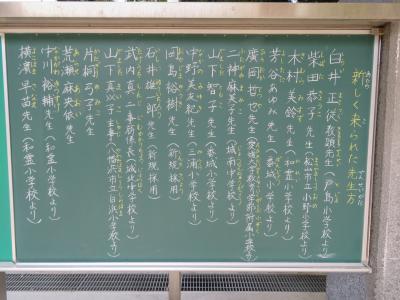 新しく来られた先生方
臼井 正徒 教頭先生（戸島小学校より）
柴田 恭子 先生（松山市立小野小学校より）
木村 美鈴 先生（和霊小学校より）
芳谷 あゆみ 先生（番城小学校より）
廣岡 哲也 先生（愛媛大学教育学部附属小学校より）
二神 麻美子 先生（城南中学校より）
山下 智子 先生（番城小学校より）
中野 美友紀 先生（三浦小学校より）
岡島 裕樹 先生（新規採用）
石井 雄一郎 先生（新規採用）
武内 真二 事務係長（城北中学校より）
山下 真以子 主事（八幡浜市立日浜小学校より）
片桐 弓子 先生
荒瀬 麻央依 先生
中川 裕輔 先生（和霊小学校より）
横濱 早苗 先生（和霊小学校より）